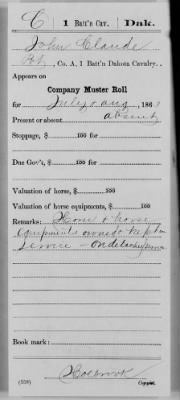 C | 1 Batt'n Cav. | Dak.
John Claude
Pt, Co. A, 1 Batt'n Dakota Cavalry.
Appears on
Company Muster Roll
for July & Aug, 186
Present or absent absent
Stoppage, $ 100 for
Due Gov't, $ 100 for
Valuation of horse, $ 100
Valuation of horse equipments, $ 100
Remarks: Horse & horse
equipments owned & kept in
service – On detached service
Book mark:
(558) Copyist.